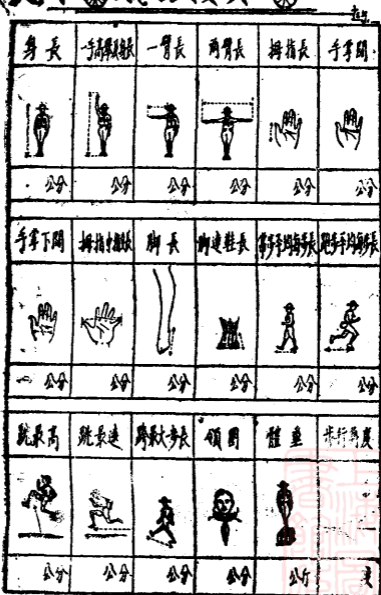 身長 一手高舉後身長 一臂長 兩臂長 拇指長 手掌闊
公分 公分 公分 公分 公分 公分
手掌下闊 拇指中指長 脚長 脚連鞋長 常步平均每步長 跑步平均每步長
公分 公分 公分 公分 公分 公分
跳最高 跳最遠 跨最大步長 領圍 體重 步行角度
公分 公分 公分 公分 公斤 度